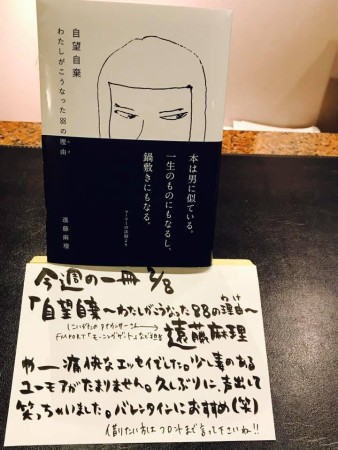 自望自棄
わたしがこうなった88の理由
遠藤麻理
本は男に似ている。
一生のものにもなるし、
鍋敷きにもなる。
今週の一冊 2/8
「自望自棄 〜わたしがこうなった88の理由〜
わけ
にいがたの アナウンサーさん
遠藤麻理
FM PORT「モーニングゲート」など担当
わー痛快なエッセイでした。少し毒のある
ユーモアがたまりません。久しぶりに、声出して
笑っちゃいました。バレンタインにおすすめ(笑)
借りたい方はフロントまで言って下さいね!!